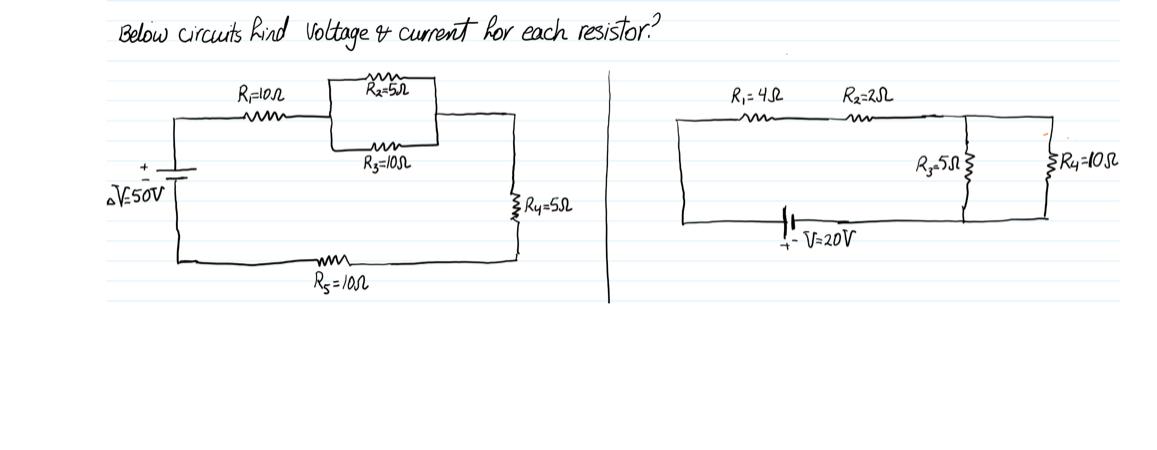 Below circuits find Voltage & current for each resistor?
R₁=10Ω
R₂=5Ω
R₃=10Ω
+
-
ΔV=50V
R₄=5Ω
R₅=10Ω
R₁=4Ω
R₂=2Ω
R₃=5Ω
R₄=10Ω
+- V=20V